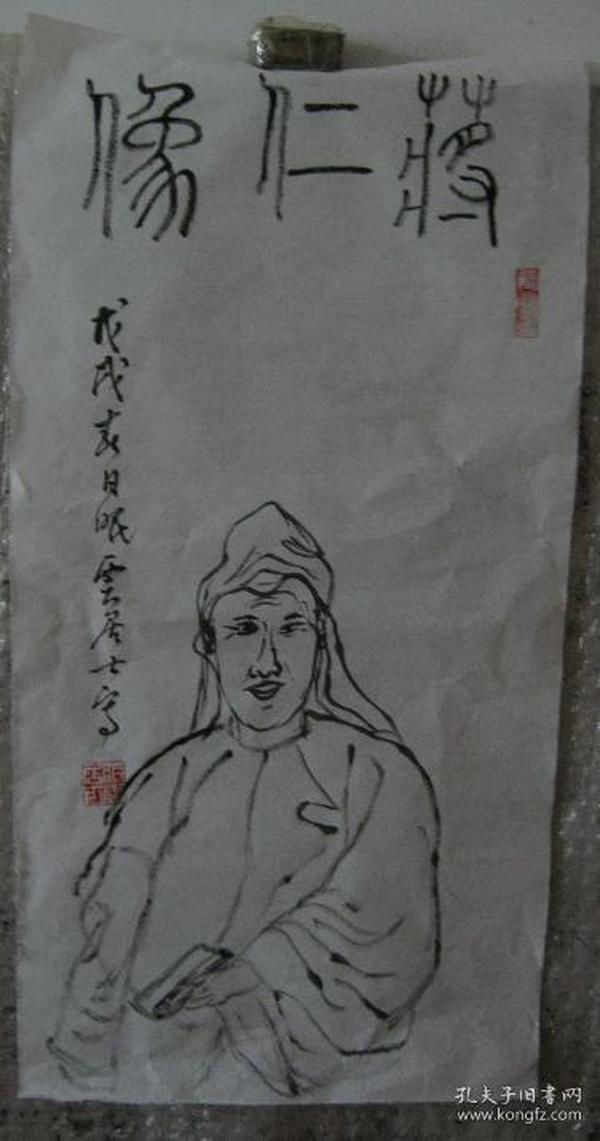 蔣仁像
戊戌春日眠雲居士寫
孔夫子旧書网
www.kongfz.com